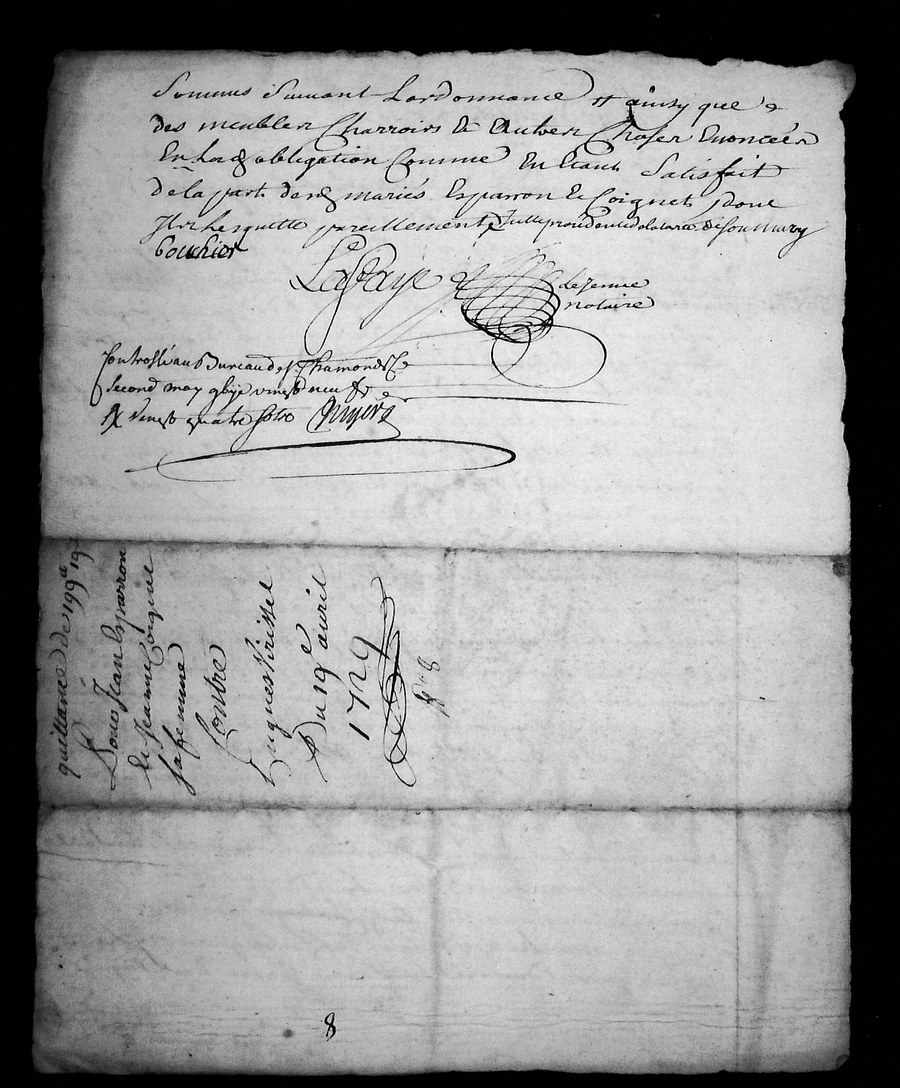 Sommes Suivant Lordonnance et ainsy que
des meubles Charroirs & Autres Choses Enoncées
En lad obligation Comme En Etant Satisfait
dela part desd mariés Esparron & Coignet, dont
Il les quitte pareillement
bouchier
Lafaye
notaire
Controllé au Bureau de St Chamond Ce
second may vingt neuf
vingt quatre sols
quittance de 199
Pour Jean Esparron
et jeanne Coignet
sa femme
Contre
hugues
Du 19e avril
1729
8